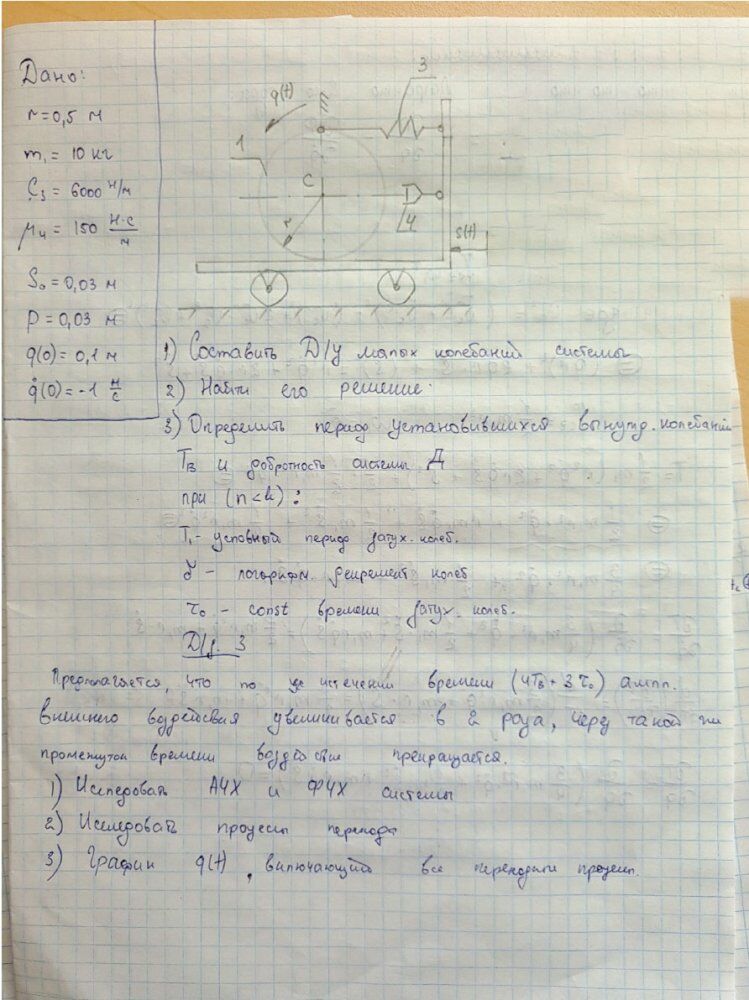 Дано:
r=0,5 м
m₁ = 10 кг
C₃ = 6000 н/м
μ₄ = 150 н·с/м
S₀ = 0,03 м
p = 0,03 м
q(0) = 0,1 м
q̇(0) = -1 м/с
q(t)
3
1
C
r
4
S(t)
1) Составить Д/у малых колебаний системы
2) Найти его решение:
3) Определить период установившихся вынужд. колебаний
Tв и добротность системы Д
при (n<k):
T₁ - условный период затух. колеб.
δ - логарифм. декремент колеб
τ₀ - const времени затух. колеб.
Д/з. 3
Предполагается, что по истечении времени (4Tв + 3τ₀) ампл.
внешнего воздействия увеличивается в 2 раза, через такой же
промежуток времени воздействие прекращается.
1) Исследовать АЧХ и ФЧХ системы
2) Исследовать процессы перехода
3) График q(t), включающий все переходные процессы.